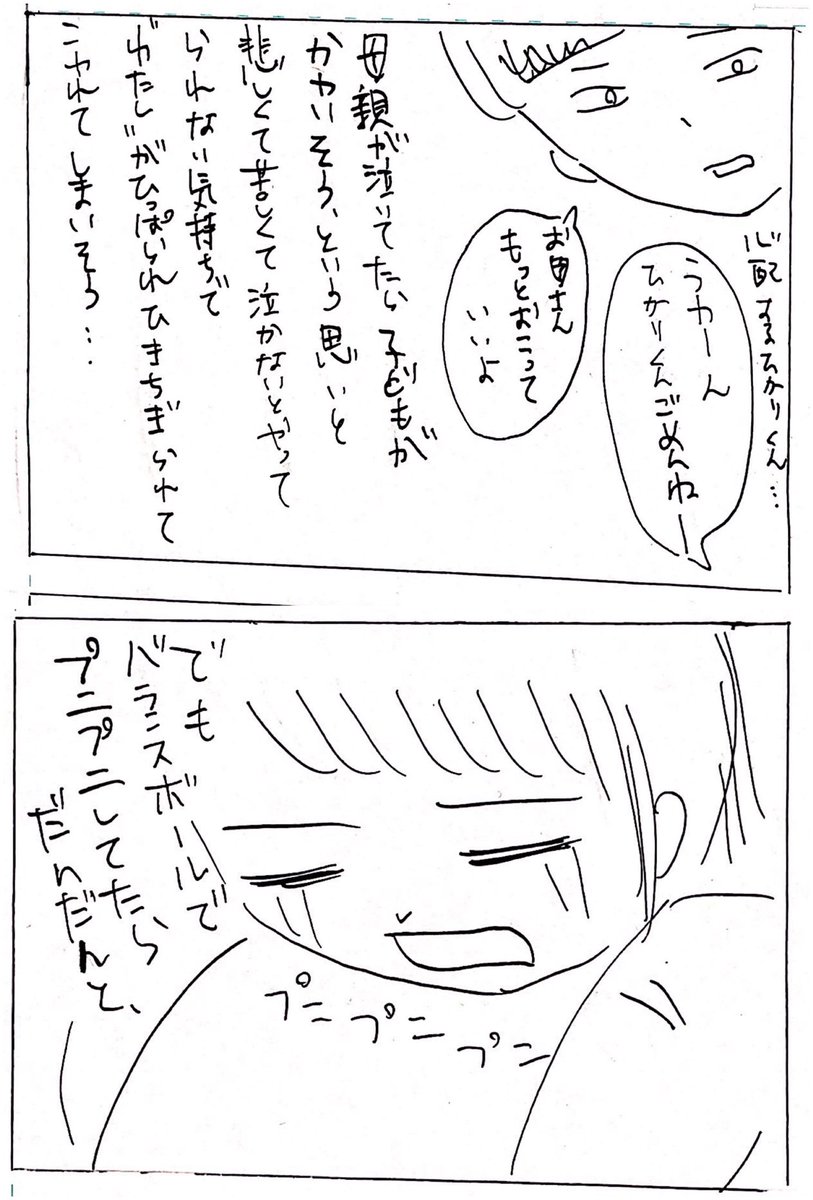 心配するひかりくん…
うわーん
ひかりくんごめんねー
お母さん
もっとおこって
いいよ
母親が泣いてたら子どもが
かわいそう、という思いと
悲しくて苦しくて泣かないとやって
られない気持ちで
"わたし"がひっぱられひきちぎられて
こわれてしまいそう…
でも
バランスボールで
プニプニしてたら
だんだんと、
プニ
プニ
プニ